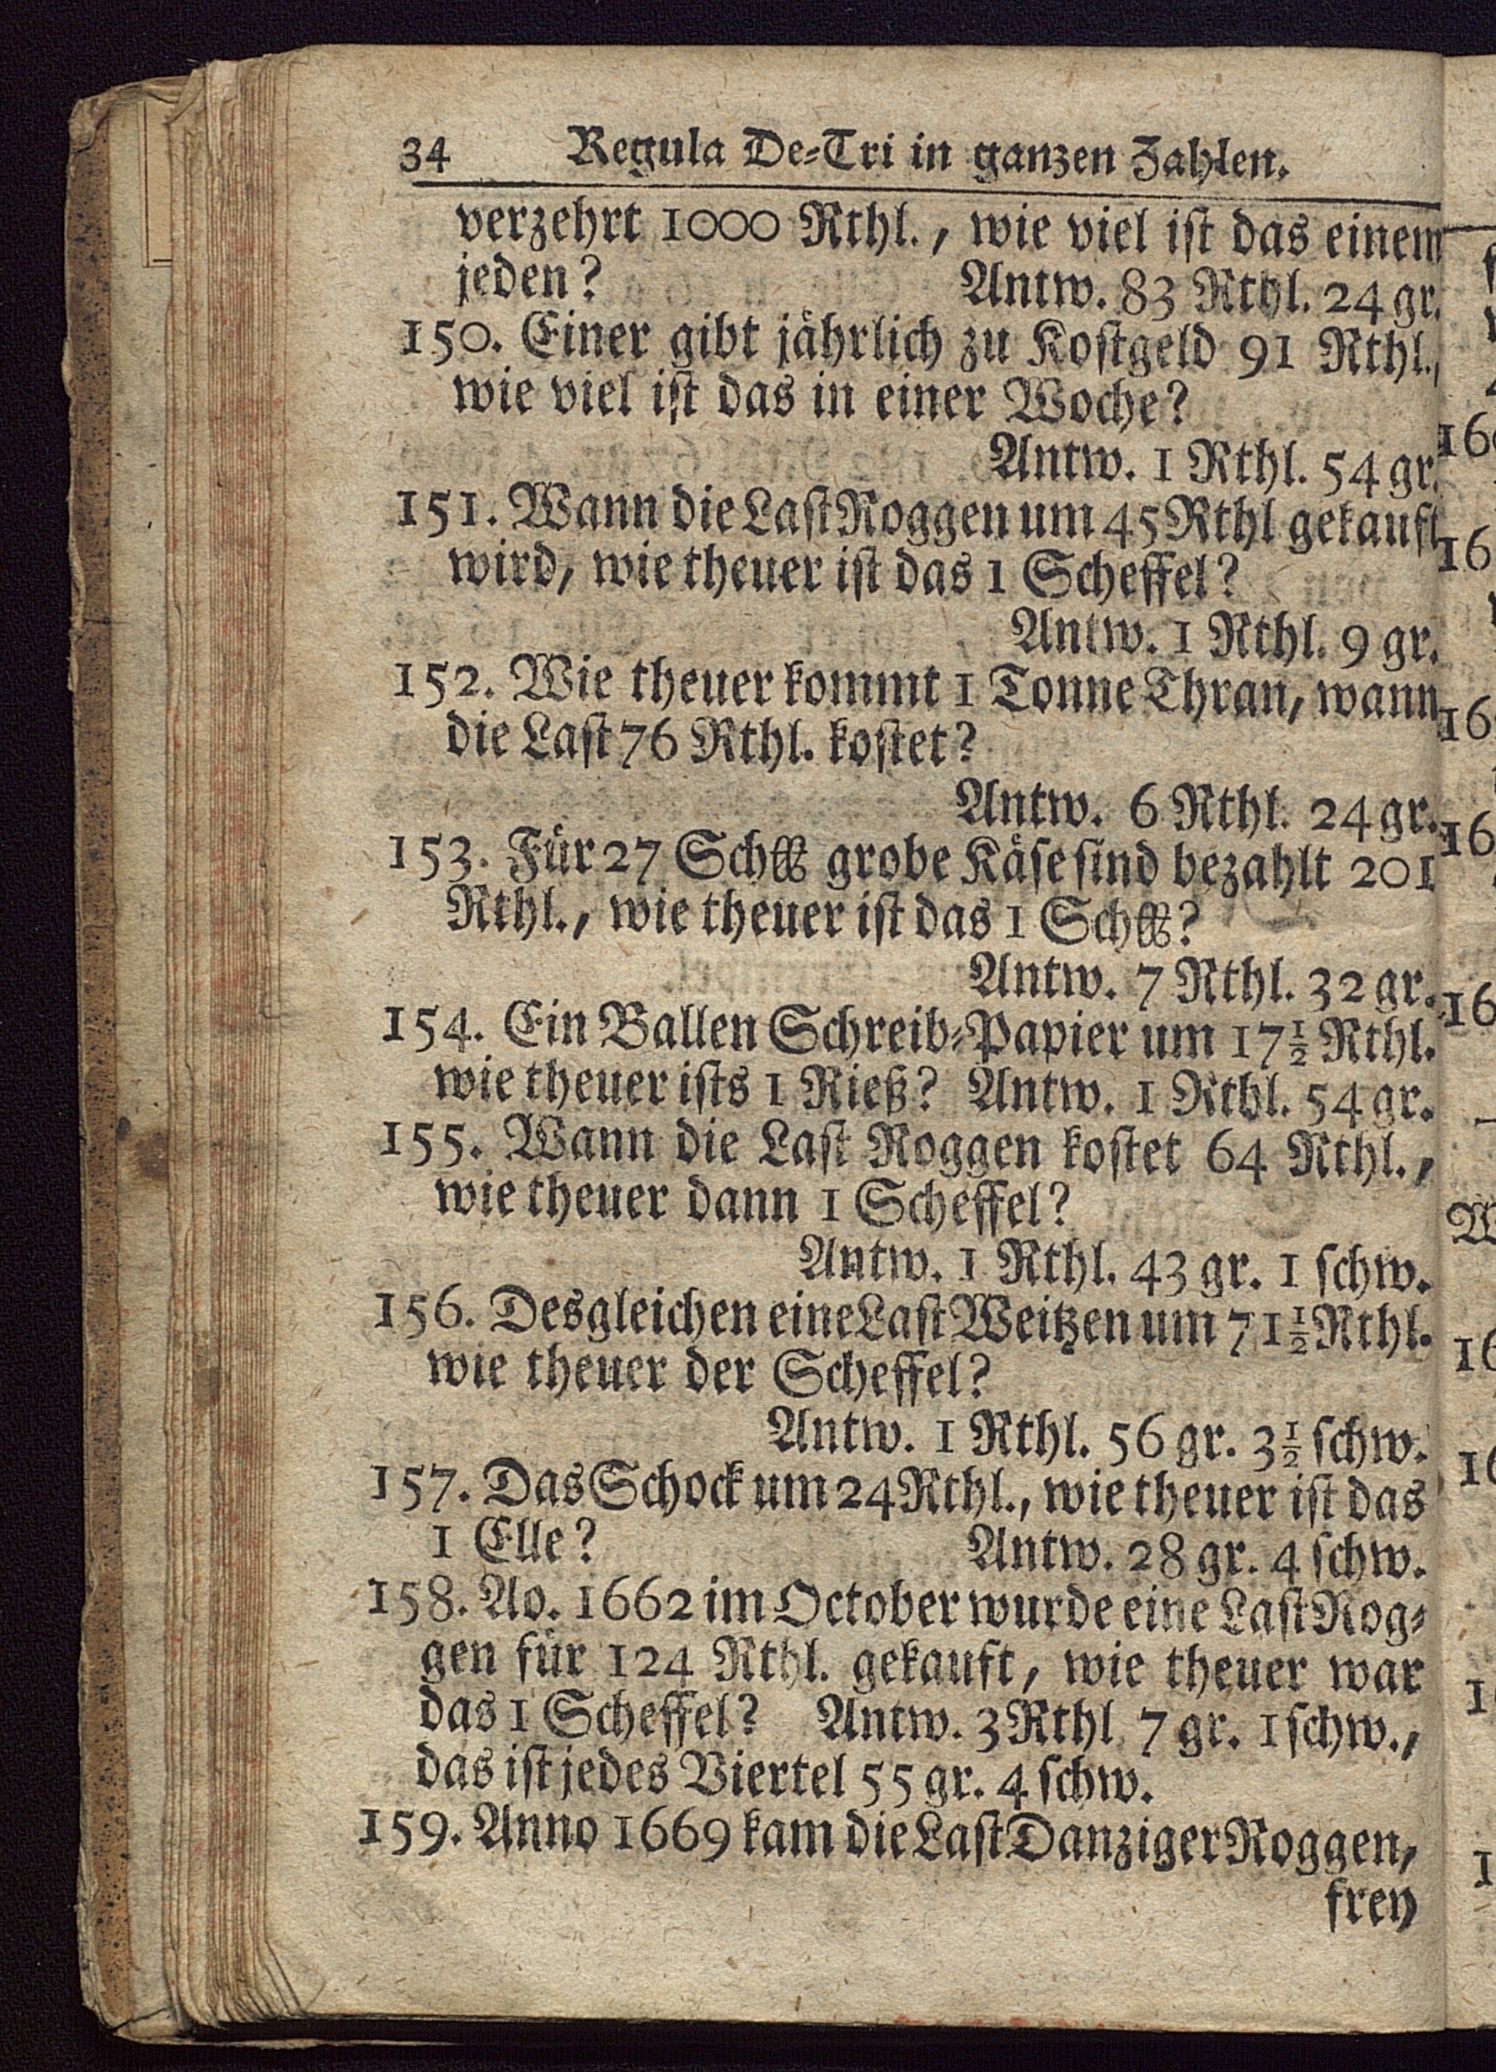 34 Regula De-Tri in ganzen Zahlen.
verzehrt 1000 Rthl., wie viel ist das einem
jeden? Antw. 83 Rthl. 24 gr.
150. Einer gibt jåhrlich zu Kostgeld 91 Rthl.,
wie viel ist das in einer Woche?
Antw. 1 Rthl. 54 gr.
151. Wann die Last Roggen um 45 Rthl gekauft
wird, wie theuer ist das 1 Scheffel?
Antw. 1 Rthl. 9 gr.
152. Wie theuer kommt 1 Tonne Thran, wann
die Last 76 Rthl. kostet?
Antw. 6 Rthl. 24 gr.
153. Für 27 Sch℔ grobe Käse sind bezahlt 201
Rthl., wie theuer ist das 1 Sch℔?
Antw. 7 Rthl. 32 gr.
154. Ein Ballen Schreib-Papier um 17½ Rthl.
wie theuer ists 1 Rieß? Antw. 1 Rthl. 54 gr.
155. Wann die Last Roggen kostet 64 Rthl.,
wie theuer dann 1 Scheffel?
Antw. 1 Rthl. 43 gr. 1 schw.
156. Desgleichen eine Last Weitzen um 71½ Rthl.
wie theuer der Scheffel?
Antw. 1 Rthl. 56 gr. 3½ schw.
157. Das Schock um 24 Rthl., wie theuer ist das
1 Elle? Antw. 28 gr. 4 schw.
158. Ao. 1662 im October wurde eine Last Rog-
gen für 124 Rthl. gekauft, wie theuer war
das 1 Scheffel? Antw. 3 Rthl. 7 gr. 1 schw.,
das ist jedes Viertel 55 gr. 4 schw.
159. Anno 1669 kam die Last Danziger Roggen,
frey